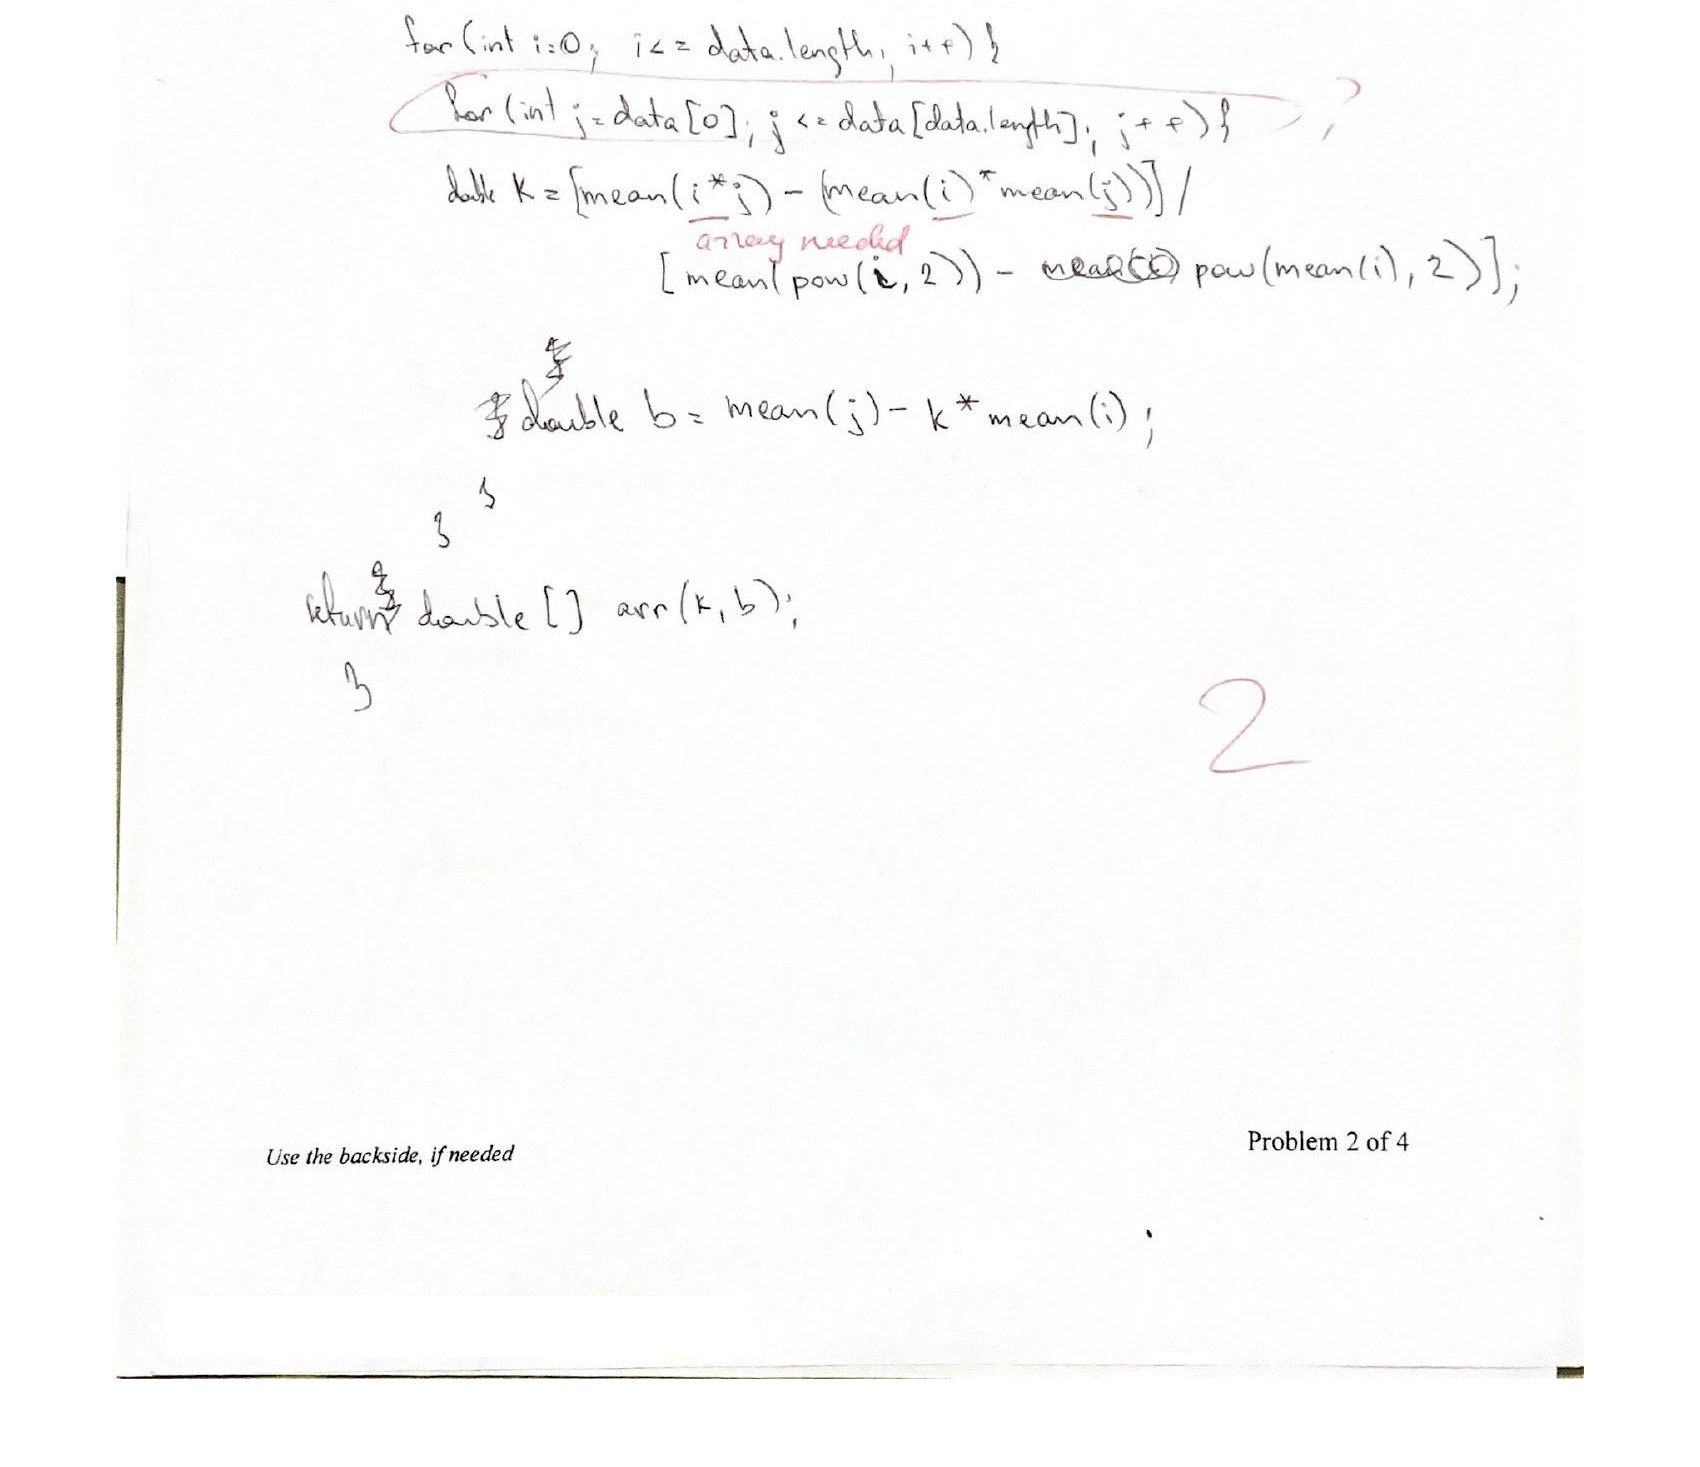 for (int i=0; i<= data.length; i++) {
for (int j= data[0]; j <= data[data.length]; j++) { ?
double k = [mean(i*j) - (mean(i)*mean(j))] /
array needed
[mean(pow(i, 2)) - pow(mean(i), 2)];
double b = mean(j) - k* mean(i);
}
}
return double [] arr(k, b);
}
2
Problem 2 of 4
Use the backside, if needed